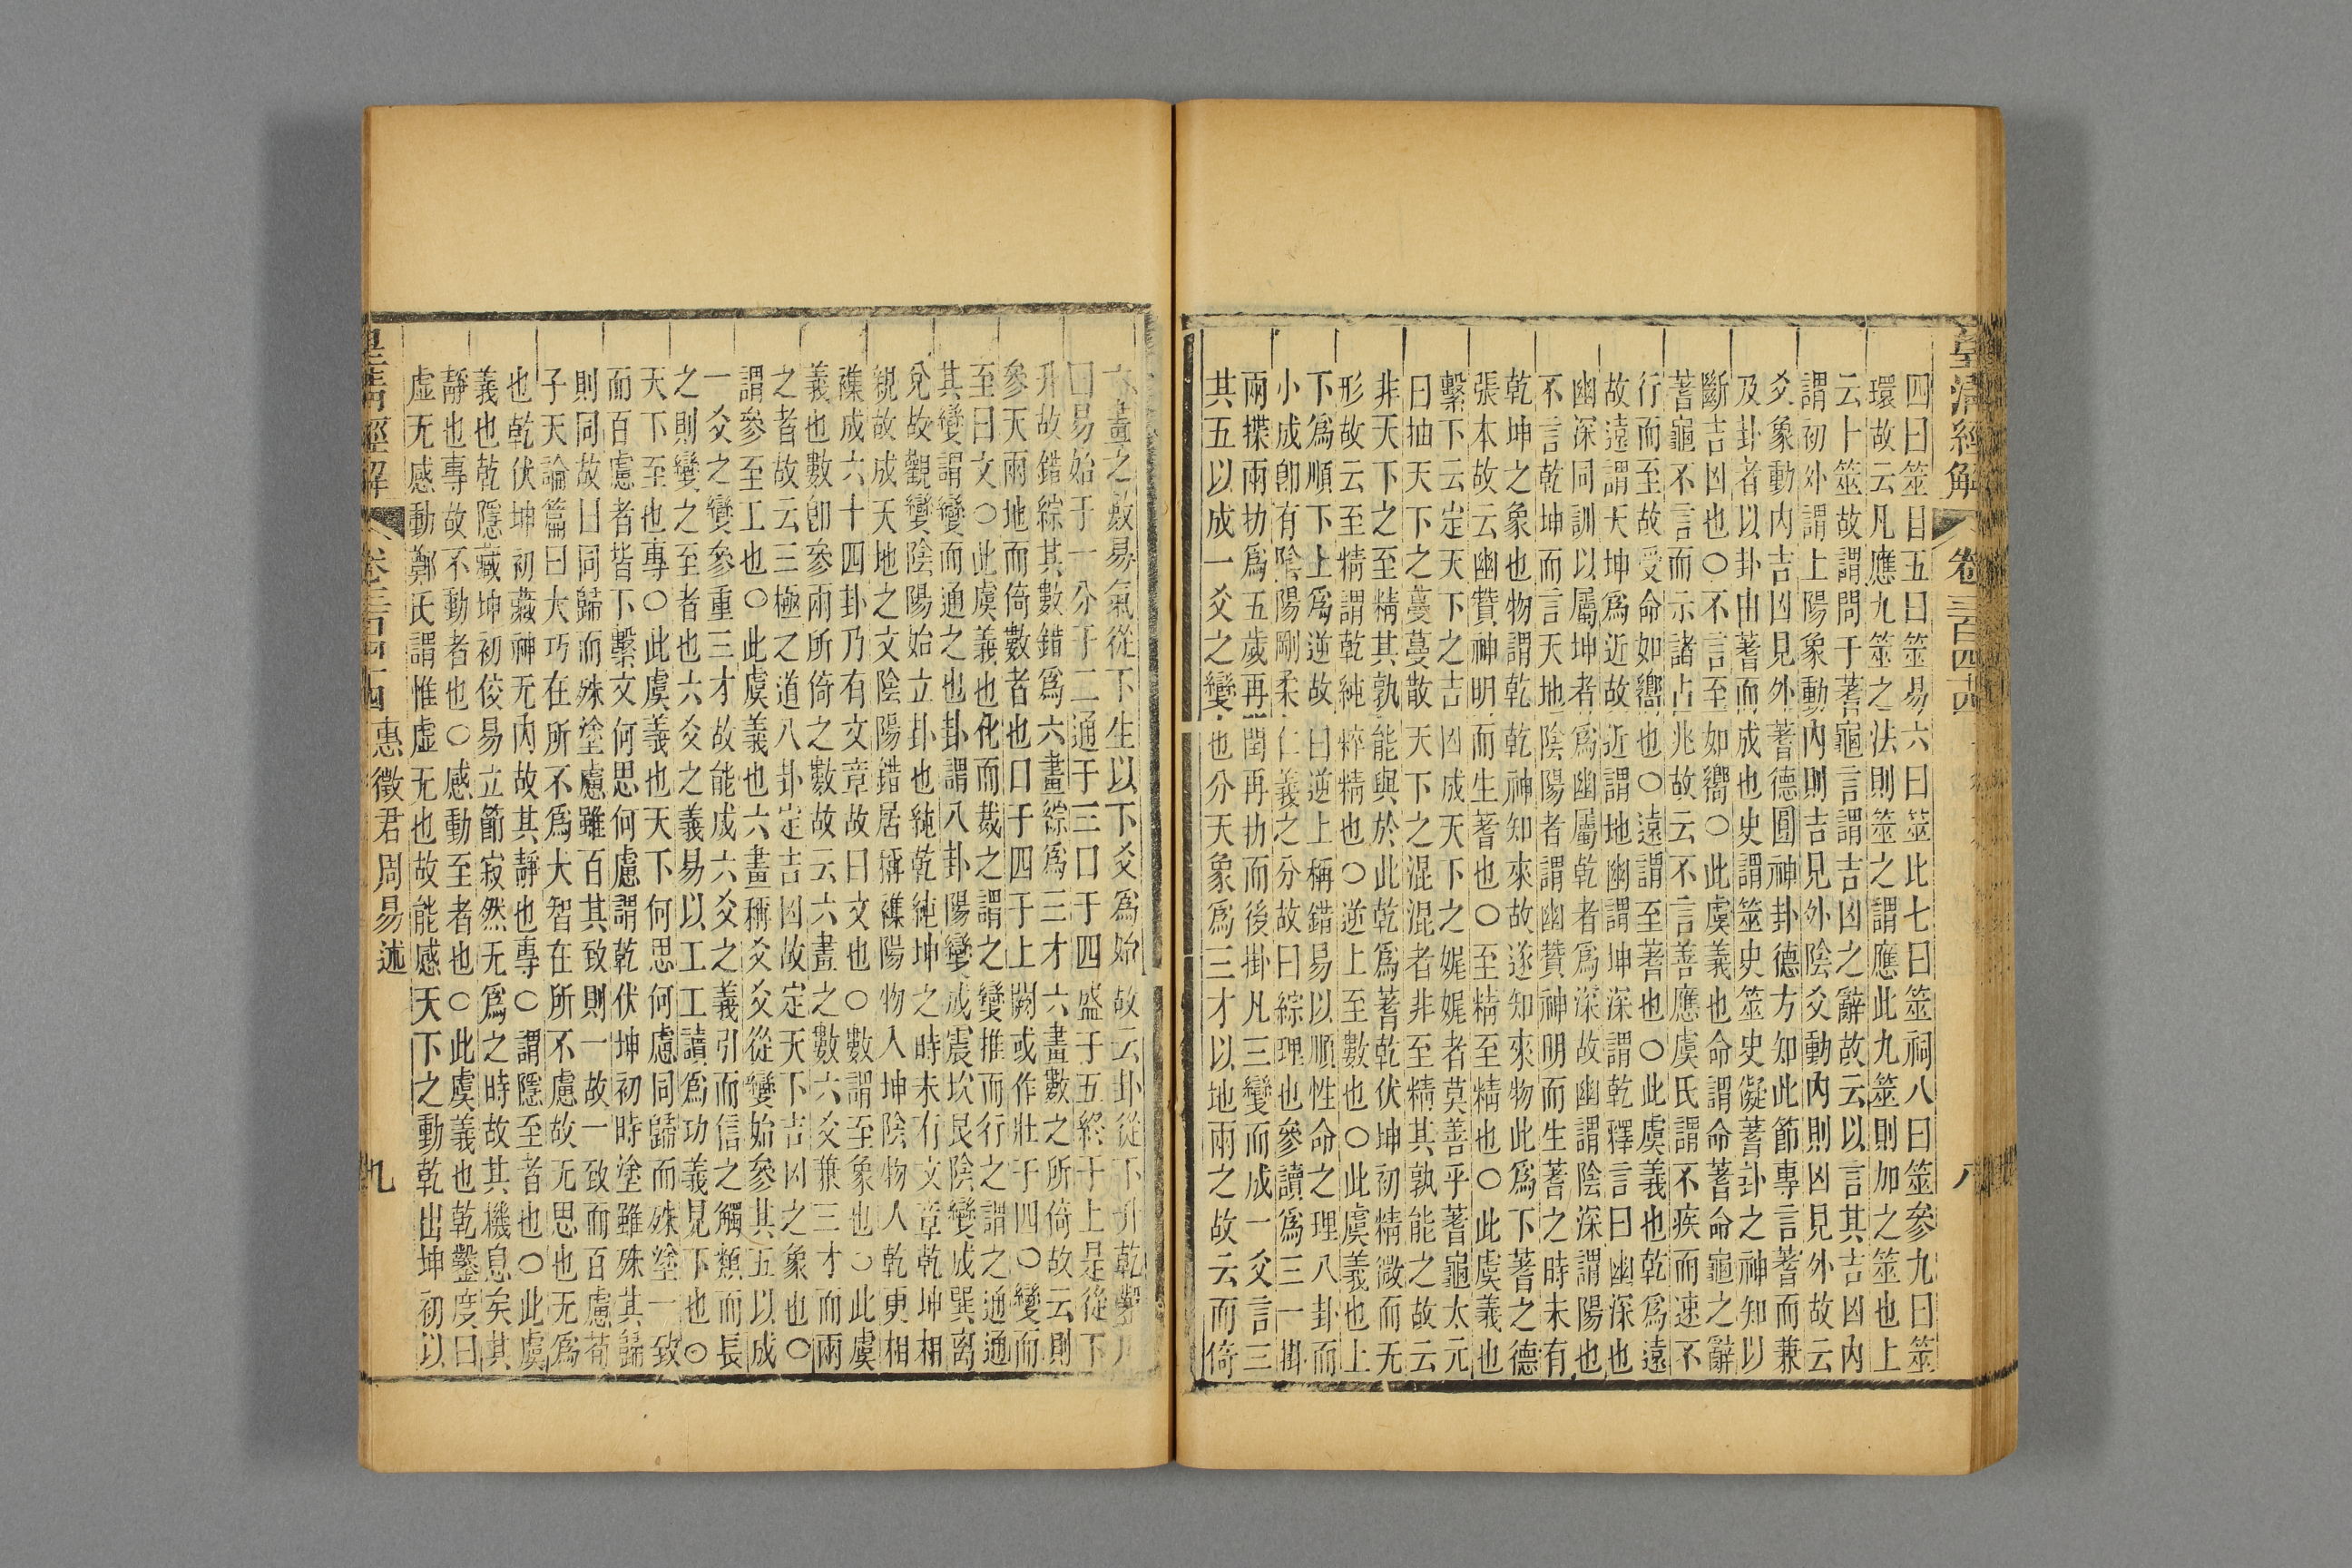 皇清經解 卷三百四十四 八
四曰筮目五曰筮易六曰筮比七曰筮祠八曰筮參九曰筮
環故云凡應九筮之法則筮之謂應此九筮則加之筮也上
云卜筮故謂問于蓍龜言謂吉凶之辭故云以言其吉凶内
謂初外謂上陽象動内則吉見外陰爻動内則凶見外故云
爻象動内吉凶見外蓍德圓神卦德方知此節專言蓍而兼
及卦者以卦由蓍而成也史謂筮史筮史儗蓍卦之神知以
斷吉凶也○不言至如嚮○此虞義也命謂命蓍命龜之辭
蓍龜不言而示諸占兆故云不言善應虞氏謂不疾而速不
行而至故受命如嚮也○遠謂至蓍也○此虞義也乾爲遠
故遠謂天坤爲近故近謂地幽謂坤深謂乾釋言曰幽深也
幽深同訓以屬坤者爲幽屬乾者爲深故幽謂陰深謂陽也
不言乾坤而言天地陰陽者謂幽贊神明而生蓍之時未有
乾坤之象也物謂乾乾神知來故遂知來物此爲下蓍之德
張本故云幽贊神明而生蓍也○至精至精也○此虞義也
繫下云定天下之吉凶成天下之娓娓者莫善乎蓍龜太元
曰抽天下之蔓蔓散天下之混混者非至精其孰能之故云
非天下之至精其孰能與於此乾爲蓍乾伏坤初精微而无
形故云至精謂乾純粹精也○逆上至數也○此虞義也上
下爲順下上爲逆故曰逆上稱錯易以順性命之理八卦而
小成卽有陰陽剛柔仁義之分故曰綜理也參讀爲三一掛
兩揲兩扐爲五歲再閏再扐而後掛凡三變而成一爻言三
其五以成一爻之變也分天象爲三才以地兩之故云而倚
六畫之數易氣從下生以下爻爲始故云卦從下升乾鑿度
曰易始于一分于二通于三 于四盛于五終于上是從下
升故錯綜其數錯爲六畫綜爲三才六畫數之所倚故云則
參天兩地而倚數者也 于四于上闕或作壯于四○變而
至曰文○此虞義也化而裁之謂之變推而行之謂之通通
其變謂變而通之也卦謂八卦陽變成震坎艮陰變成巽离
兌故觀變陰陽始立卦也純乾純坤之時未有文章乾坤相
親故成天地之文陰陽錯居稱襍陽物入坤陰物入乾更相
襍成六十四卦乃有文章故曰文也○數謂至象也○此虞
義也數卽參兩所倚之數故云六畫之數六爻兼三才而兩
之者故云三極之道八卦定吉凶故定天下吉凶之象也○
謂參至工也○此虞義也六畫稱爻爻從變始參其五以成
一爻之變參重三才故能成六爻之義引而信之觸類而長
之則變之至者也六爻之義易以工工讀爲功義見下也○
天下至也專○此虞義也天下何思何慮同歸而殊塗一致
而百慮者皆下繫文何思何慮謂乾伏坤初時塗雖殊其歸
則同故曰同歸而殊塗慮雖百其致則一故一致而百慮荀
子天論篇曰大巧在所不爲大智在所不慮故无思也无爲
也乾伏坤初藏神无内故其靜也專○謂隱至者也○此虞
義也乾隱藏坤初佼易立節寂然无爲之時故其機息矣其
靜也專故不動者也○感動至者也○此虞義也乾鑿度曰
虛无感動鄭氏謂惟虛无也故能感天下之動乾出坤初以
皇清經解 卷三百四十四 惠徵君周易述 九